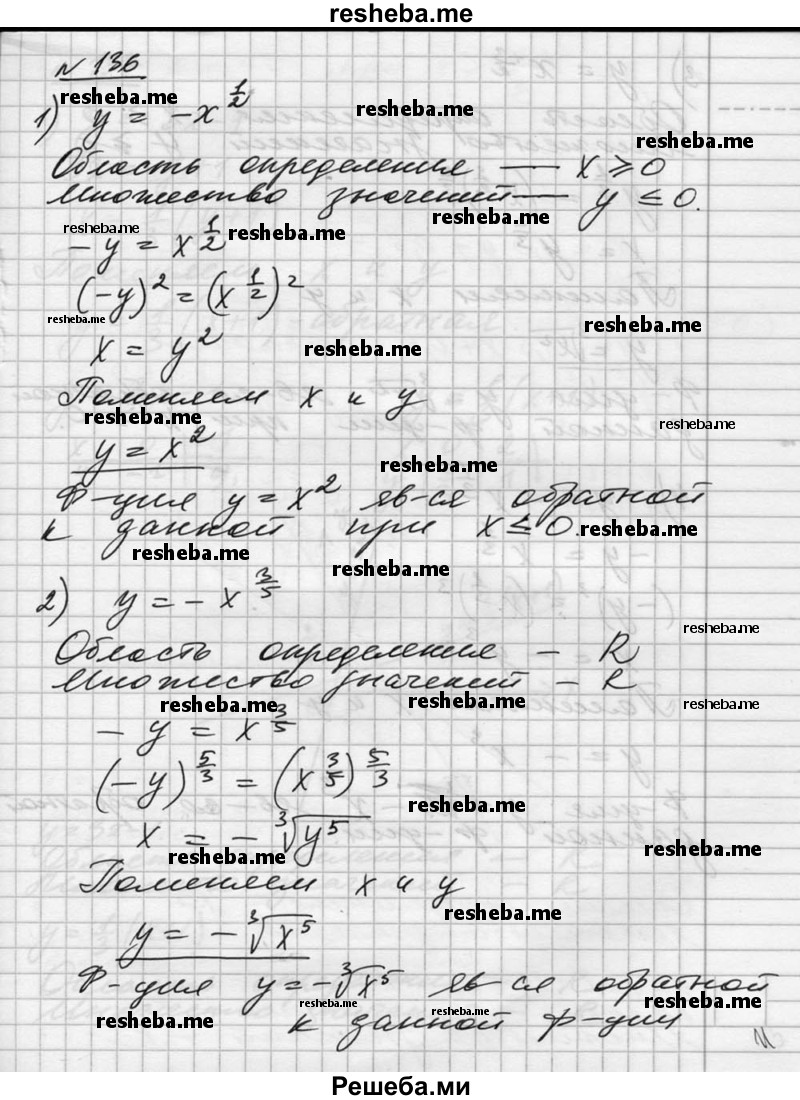 resheba.me
№ 136
resheba.me
1) y = -x^{1/2}
resheba.me
resheba.me
Область определения — x ≥ 0
Множество значений — y ≤ 0.
resheba.me
resheba.me
-y = x^{1/2}
resheba.me
(-y)^2 = (x^{1/2})^2
resheba.me
resheba.me
x = y^2
resheba.me
Поменяем x и y
resheba.me
resheba.me
y = x^2
resheba.me
Ф-ция y = x^2 яв-ся обратной
к данной при x ≤ 0.
resheba.me
resheba.me
resheba.me
2) y = -x^{3/5}
resheba.me
Область определения – R
Множество значений – R
resheba.me
resheba.me
resheba.me
-y = x^{3/5}
(-y)^{5/3} = (x^{3/5})^{5/3}
resheba.me
x = -∛y^5
resheba.me
resheba.me
Поменяем x и y
resheba.me
y = -∛x^5
Ф-ция y = -∛x^5 яв-ся обратной
resheba.me
resheba.me
resheba.me
resheba.me
к данной ф-ции
Решеба.ми